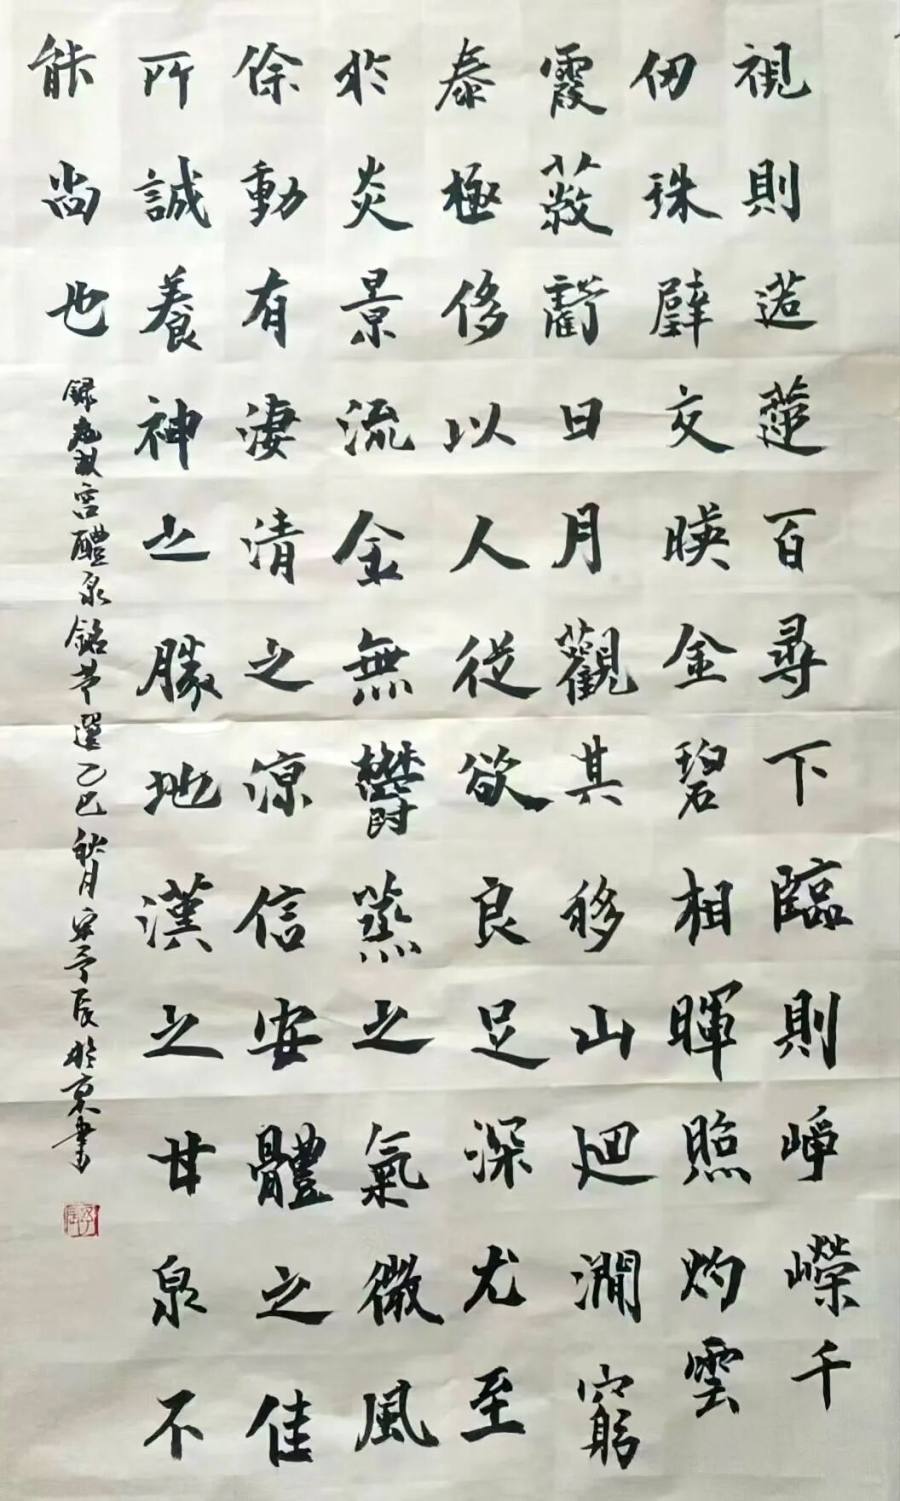 視則迢遰百尋下臨則崢嶸千
仞珠璧交暎金碧相暉照灼雲
霞蔽虧日月觀其移山迴澗窮
泰極侈以人從欲良足深尤至
於炎景流金無鬱蒸之氣微風
徐動有淒清之涼信安體之佳
所誠養神之勝地漢之甘泉不
能尚也
錄九成宮醴泉銘節選乙巳秋月於京書